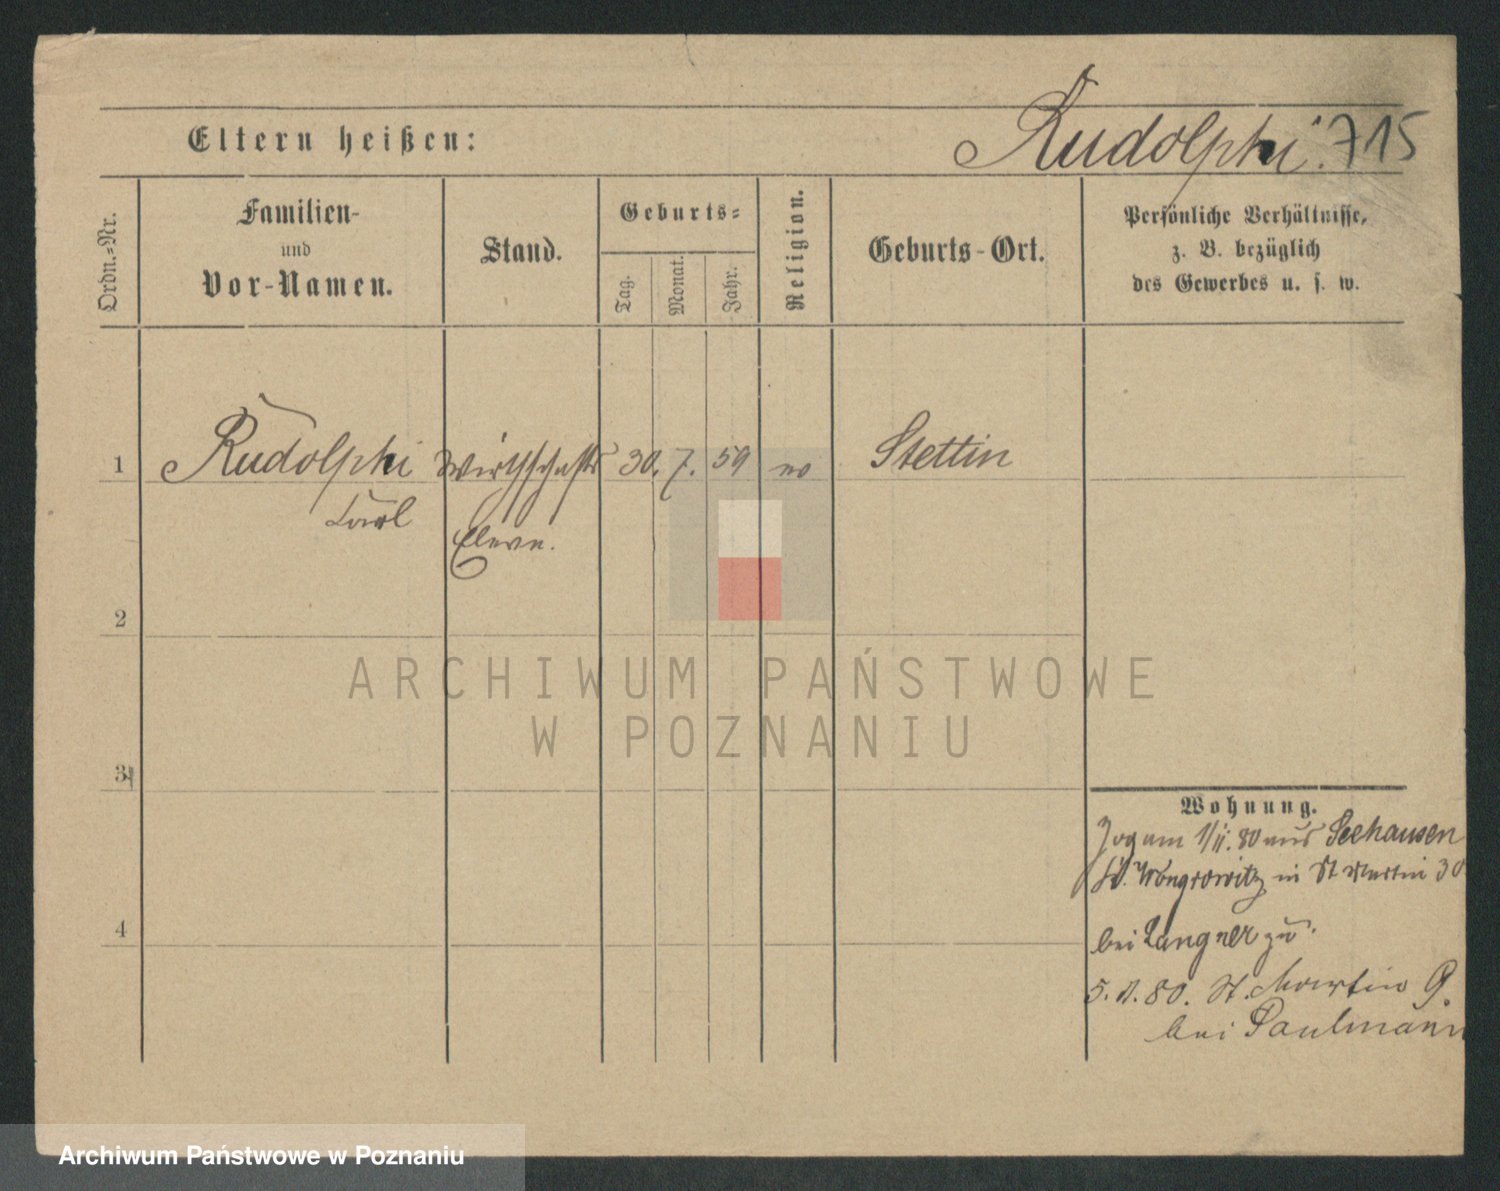 Eltern heißen:
Rudolphi. 715
Ordn.-Nr.
Familien-
und
Vor-Namen.
Stand.
Geburts-
Tag.
Monat.
Jahr.
Religion.
Geburts-Ort.
Persönliche Verhältnisse,
z. B. bezüglich
des Gewerbes u. s. w.
1 Rudolphi Wirthschafts 30. 7. 59 ev Stettin
Carl
Eleve.
2
3
4
Wohnung.
Zog am 1/11. 80 aus Seehausen
Wongrowitz in St Martin 30
bei Langner zu.
5. 11. 80. St. Martin 9.
bei Paulmann
ARCHIWUM PAŃSTWOWE
W POZNANIU
Archiwum Państwowe w Poznaniu